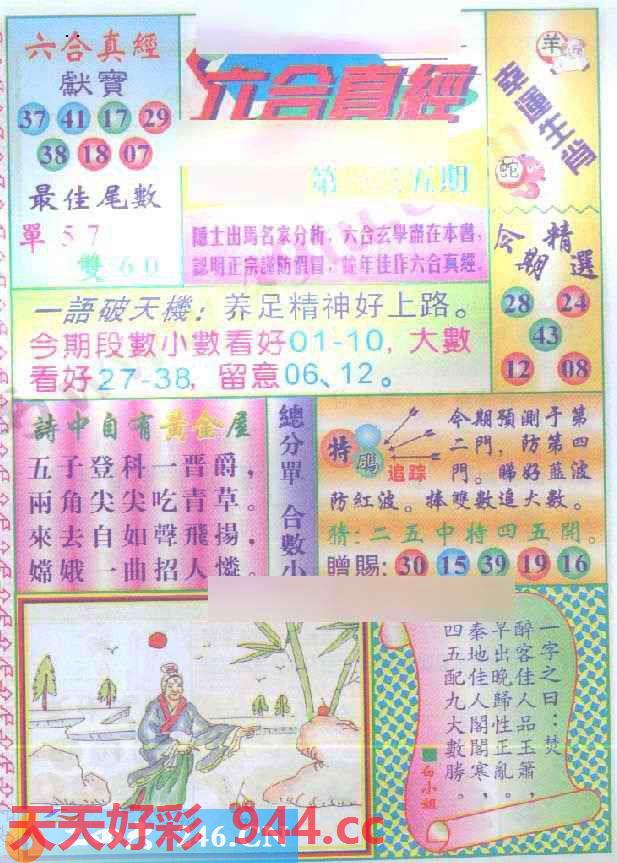 六合真經
獻寶
37 41 17 29
38 18 07
最佳尾數
單57
雙60
六合真經
第 五期
隱士出馬名家分析,六合玄學盡在本書,
認明正宗謹防假冒,蛇年佳作六合真經.
羊
幸運生肖
蛇
今期精選
28 24
43
12 08
一語破天機:养足精神好上路。
今期段數小數看好01-10,大數
看好27-38,留意06、12。
詩中自有黃金屋
五子登科一晋爵,
兩角尖尖吃青草。
來去自如聲飛揚,
嫦娥一曲招人憐。
總分單 合數小
特碼
追踪
今期預測于第
二門,防第四
門。睇好藍波
防紅波。捧雙數追大數。
猜:二五中特四五開。
贈賜:30 15 39 19 16
一字之曰:焚
醉客佳人品玉簫,
早出晚歸性正亂。
秦地佳人閣閣寒,
四五配九大數勝。
白小姐
天天好彩 944.cc
46.CN